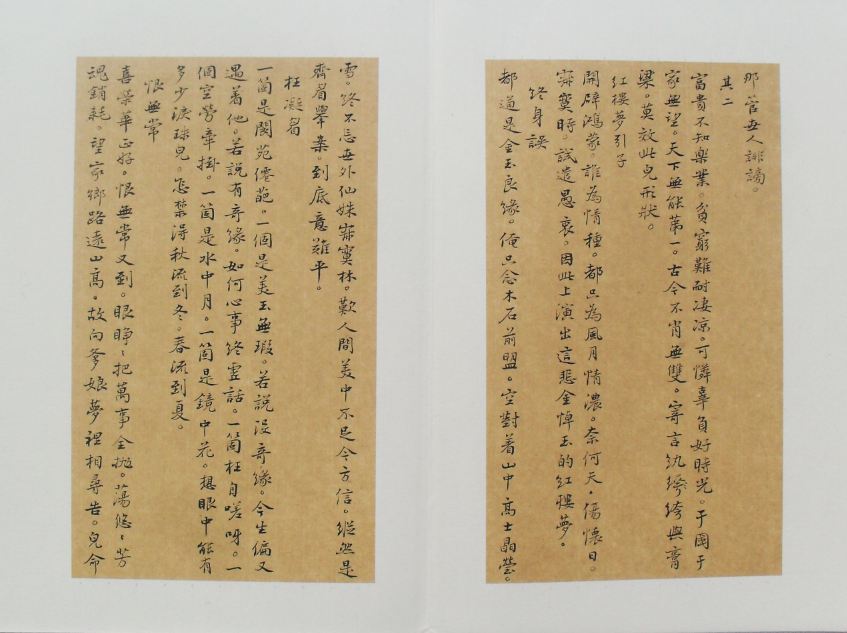 那管世人誹謗。
其二
富貴不知樂業。貧窮難耐凄凉。可憐辜負好時光。于國于
家無望。天下無能第一。古今不肖無雙。寄言紈袴與膏
梁。莫效此兒形狀。
紅樓夢引子
開辟鴻蒙。誰為情種。都只為風月情濃。奈何天。傷懷日。
寂寞時。試遣愚衷。因此上演出這悲金悼玉的紅樓夢。
終身誤
都道是金玉良緣。俺只念木石前盟。空對着山中高士晶瑩。
雪。終不忘世外仙姝寂寞林。歎人間美中不足今方信。縱然是
齊眉舉案。到底意難平。
枉凝眉
一箇是閬苑僊葩。一個是美玉無瑕。若說沒奇緣。今生偏又
遇着他。若說有奇緣。如何心事終虛話。一箇枉自嗟呀。一
個空勞牽掛。一箇是水中月。一箇是鏡中花。想眼中能有
多少淚珠兒。怎禁得秋流到冬。春流到夏。
恨無常
喜榮華正好。恨無常又到。眼睜〻把萬事全拋。蕩悠〻芳
魂銷耗。望家鄉路遠山高。故向爹娘夢裡相尋告。兒命